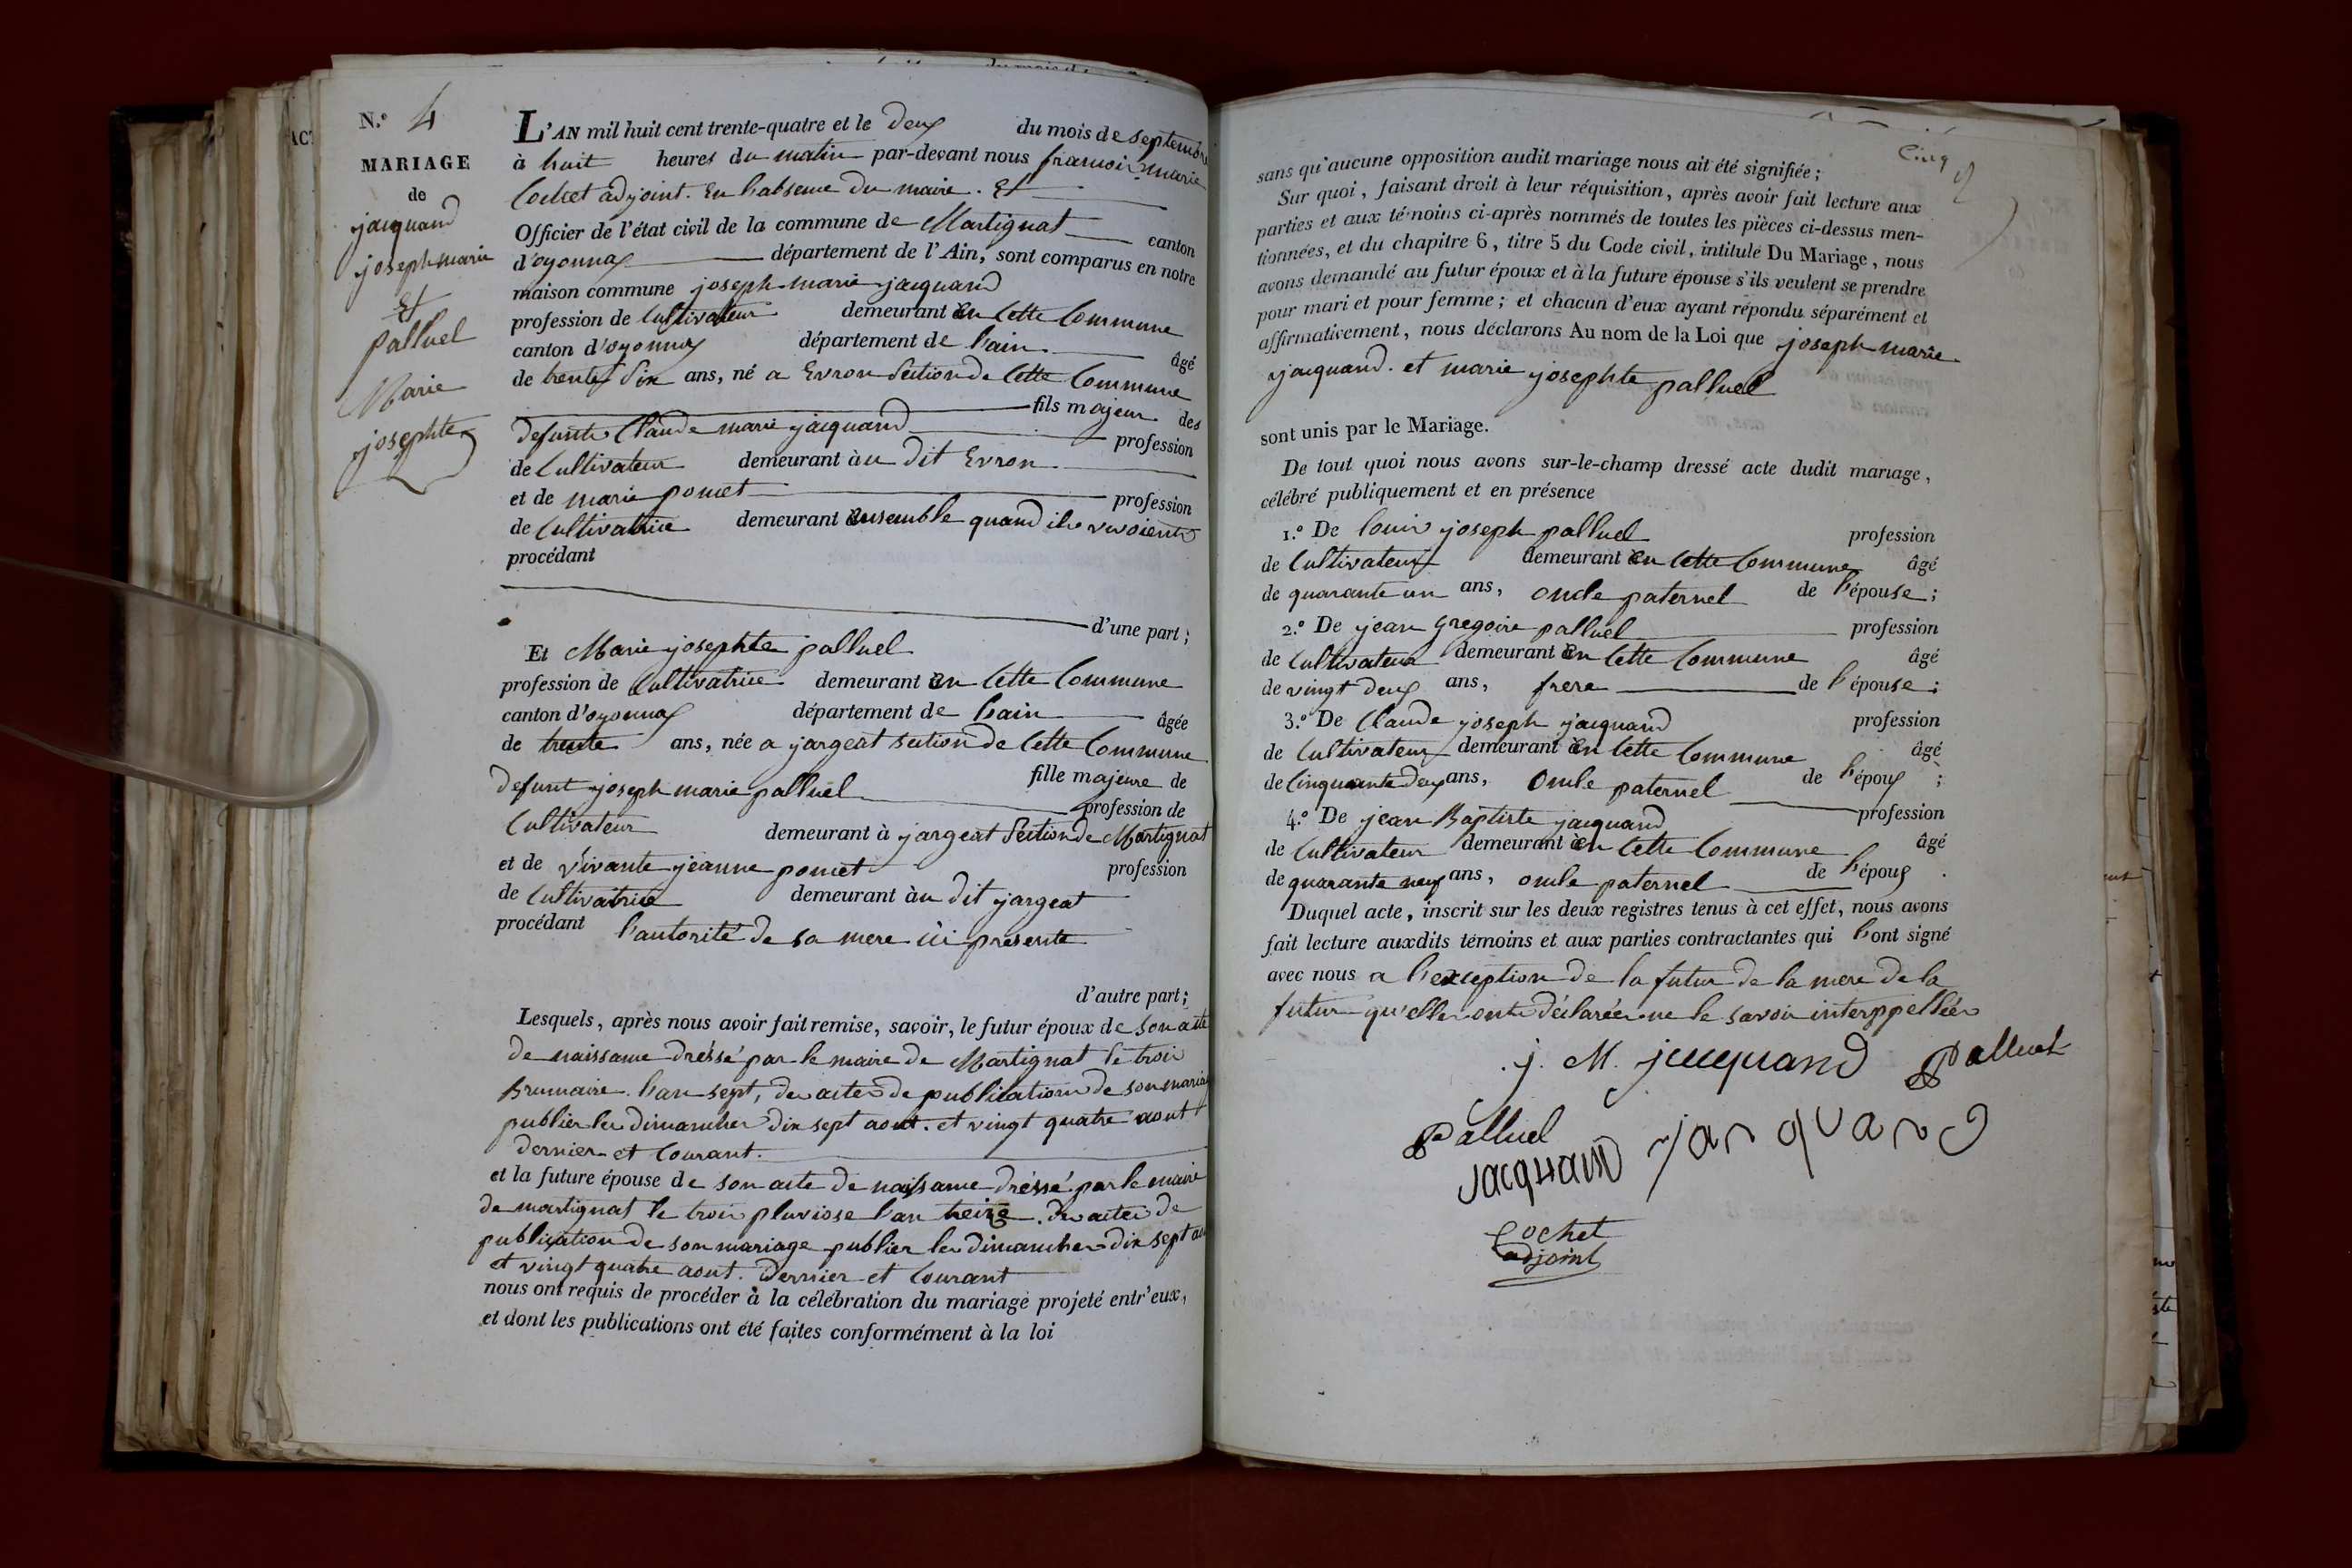 N.º 4
MARIAGE
de
jacquand
joseph marie
Et
palluel
Marie
josephte
L'AN mil huit cent trente-quatre et le deux du mois de septembre
à huit heures du matin par-devant nous francois marie
Cochet adjoint. En l'absence du maire. Et
Officier de l'état civil de la commune de Martignat canton
d'oyonnax département de l'Ain, sont comparus en notre
maison commune joseph marie jacquand
profession de Cultivateur demeurant En Cette Commune
canton d'oyonnax département de l'ain âgé
de trente six ans, né a Evron Section de Cette Commune
fils majeur des
defunts Claude marie jacquand profession
de Cultivateur demeurant àu dit Evron
et de marie pomet profession
de Cultivatrice demeurant Ensemble quand ils vivoients
procédant
d'une part;
Et Marie josephte palluel
profession de Cultivatrice demeurant En Cette Commune
canton d'oyonnax département de l'ain âgée
de trente ans, née a jargeat section de Cette Commune
fille majeure de
defunt joseph marie palluel profession de
Cultivateur demeurant à jargeat Section de Martignat
et de vivante jeanne pomet profession
de Cultivatrice demeurant àu dit jargeat
procédant l'autorité de sa mere ici presente
d'autre part;
Lesquels, après nous avoir fait remise, savoir, le futur époux de son acte
de naissance dréssé par le maire de Martignat le trois
Brumaire l'an sept, des actes de publications de son mariage
publier les dimanches dix sept aout. et vingt quatre aout
dernier et Courant.
et la future épouse de son acte de naissance dréssé par le maire
de martignat le trois pluviose l'an treize. des actes de
publication de son mariage publier les dimanches dix sept aout
et vingt quatre aout. dernier et Courant
nous ont requis de procéder à la célébration du mariage projeté entr'eux,
et dont les publications ont été faites conformément à la loi
Cinq
sans qu'aucune opposition audit mariage nous ait été signifiée;
Sur quoi, faisant droit à leur réquisition, après avoir fait lecture aux
parties et aux témoins ci-après nommés de toutes les pièces ci-dessus men-
tionnées, et du chapitre 6, titre 5 du Code civil, intitulé Du Mariage, nous
avons demandé au futur époux et à la future épouse s'ils veulent se prendre
pour mari et pour femme; et chacun d'eux ayant répondu séparément et
affirmativement, nous déclarons Au nom de la Loi que joseph marie
jacquand. et marie josephte palluel
sont unis par le Mariage.
De tout quoi nous avons sur-le-champ dressé acte dudit mariage,
célébré publiquement et en présence
1.º De louis joseph palluel profession
de Cultivateur demeurant En Cette Commune âgé
de quarante un ans, oncle paternel de l'épouse;
2.º De jean gregoire palluel profession
de Cultivateur demeurant En Cette Commune âgé
de vingt deux ans, frere de l'épouse;
3.º De Claude joseph jacquand profession
de Cultivateur demeurant En Cette Commune âgé
de Cinquante deux ans, Oncle paternel de l'époux;
4.º De jean Baptiste jacquand profession
de Cultivateur demeurant En Cette Commune âgé
de quarante neuf ans, oncle paternel de l'époux.
Duquel acte, inscrit sur les deux registres tenus à cet effet, nous avons
fait lecture auxdits témoins et aux parties contractantes qui l'ont signé
avec nous a l'exception de la futur de la mere de la
futur qu'elles onts déclarées ne le savoir interppellées
j. M. jacquand Palluel
Palluel
jacquand jacquand
Cochet
adjoint